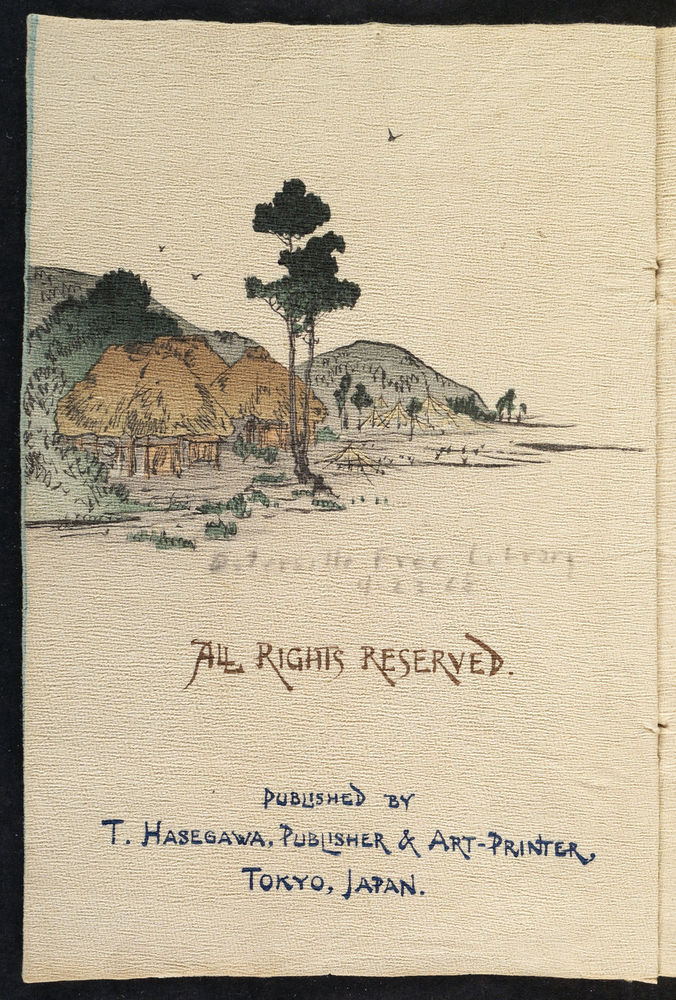 Free Library
ALL RIGHTS RESERVED.
PUBLISHED BY
T. HASEGAWA, PUBLISHER & ART-PRINTER,
TOKYO, JAPAN.